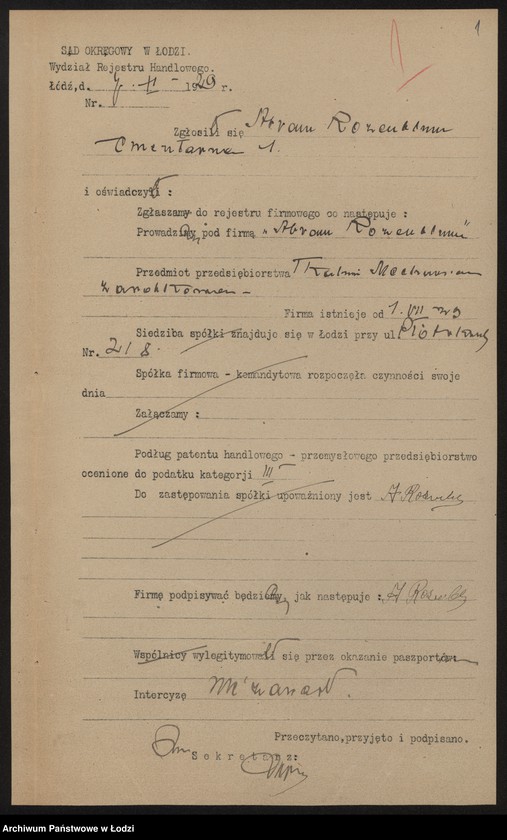 1
SĄD OKRĘGOWY W ŁODZI.
Wydział Rejestru Handlowego.
Łódź, d. 7.XI - 1929 r.
Nr.
Zgłosił się Abram Rozenblum
Cmentarna 1.
i oświadczył :
Zgłaszamy do rejestru firmowego co następuje :
Prowadzimy pod firmą „Abram Rozenblum"
Przedmiot przedsiębiorstwa Tkalnia Mechaniczna
zarobkowa
Firma istnieje od 1.VII 29
Siedziba spółki znajduje się w Łodzi przy ul.
Nr. 218.
Spółka firmowa - komandytowa rozpoczęła czynności swoje
dnia
Załączamy :
Podług patentu handlowego - przemysłowego przedsiębiorstwo
ocenione do podatku kategorji III
Do zastępowania spółki upoważniony jest A
Firmę podpisywać będziemy jak następuje : A
Wspólnicy wylegitymowali się przez okazanie paszportów
Intercyzę nie zawarł.
Przeczytano, przyjęto i podpisano.
Sekretarz:
Archiwum Państwowe w Łodzi